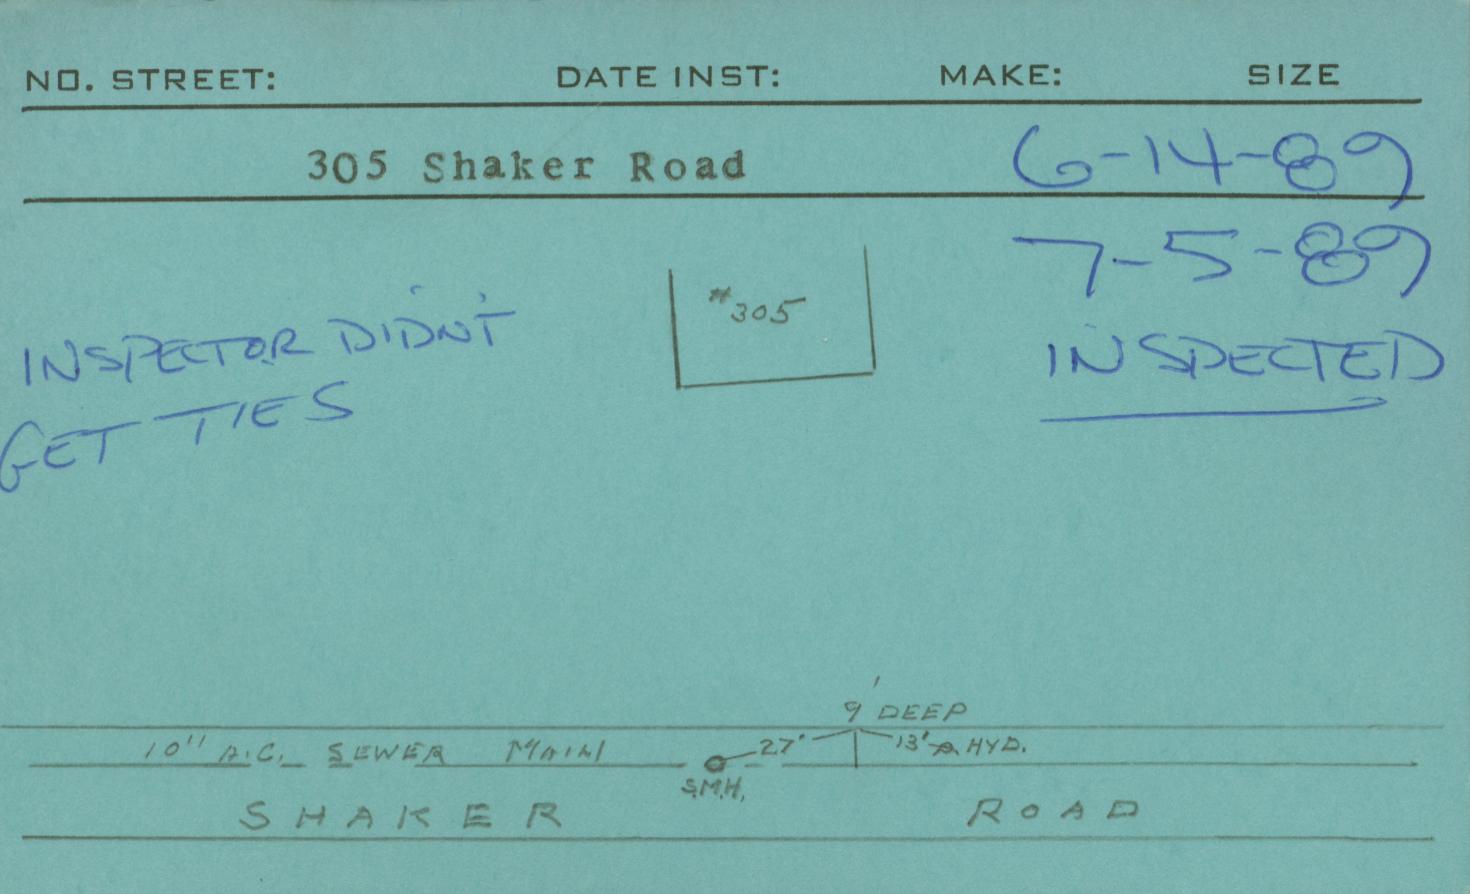 NO. STREET: DATE INST: MAKE: SIZE
305 Shaker Road 6-14-89
7-5-89
#305
INSPECTOR DIDN'T
GET TIES
INSPECTED
9' DEEP
10" A.C. SEWER MAIN 27' 13' HYD.
S.M.H.
SHAKER ROAD